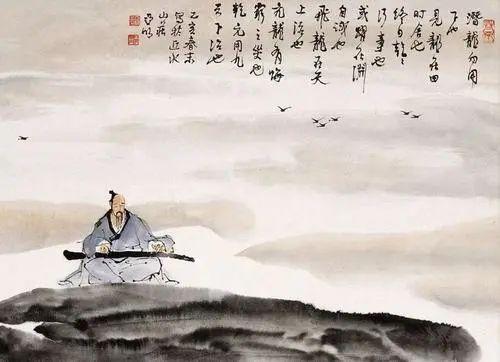 潛龍勿用
下也
見龍在田
時舍也
終日乾〻
行事也
或躍在淵
自試也
飛龍在天
上治也
亢龍有悔
窮之災也
乾元用九
天下治也
乙亥春末
寫於近水
山莊
亞明